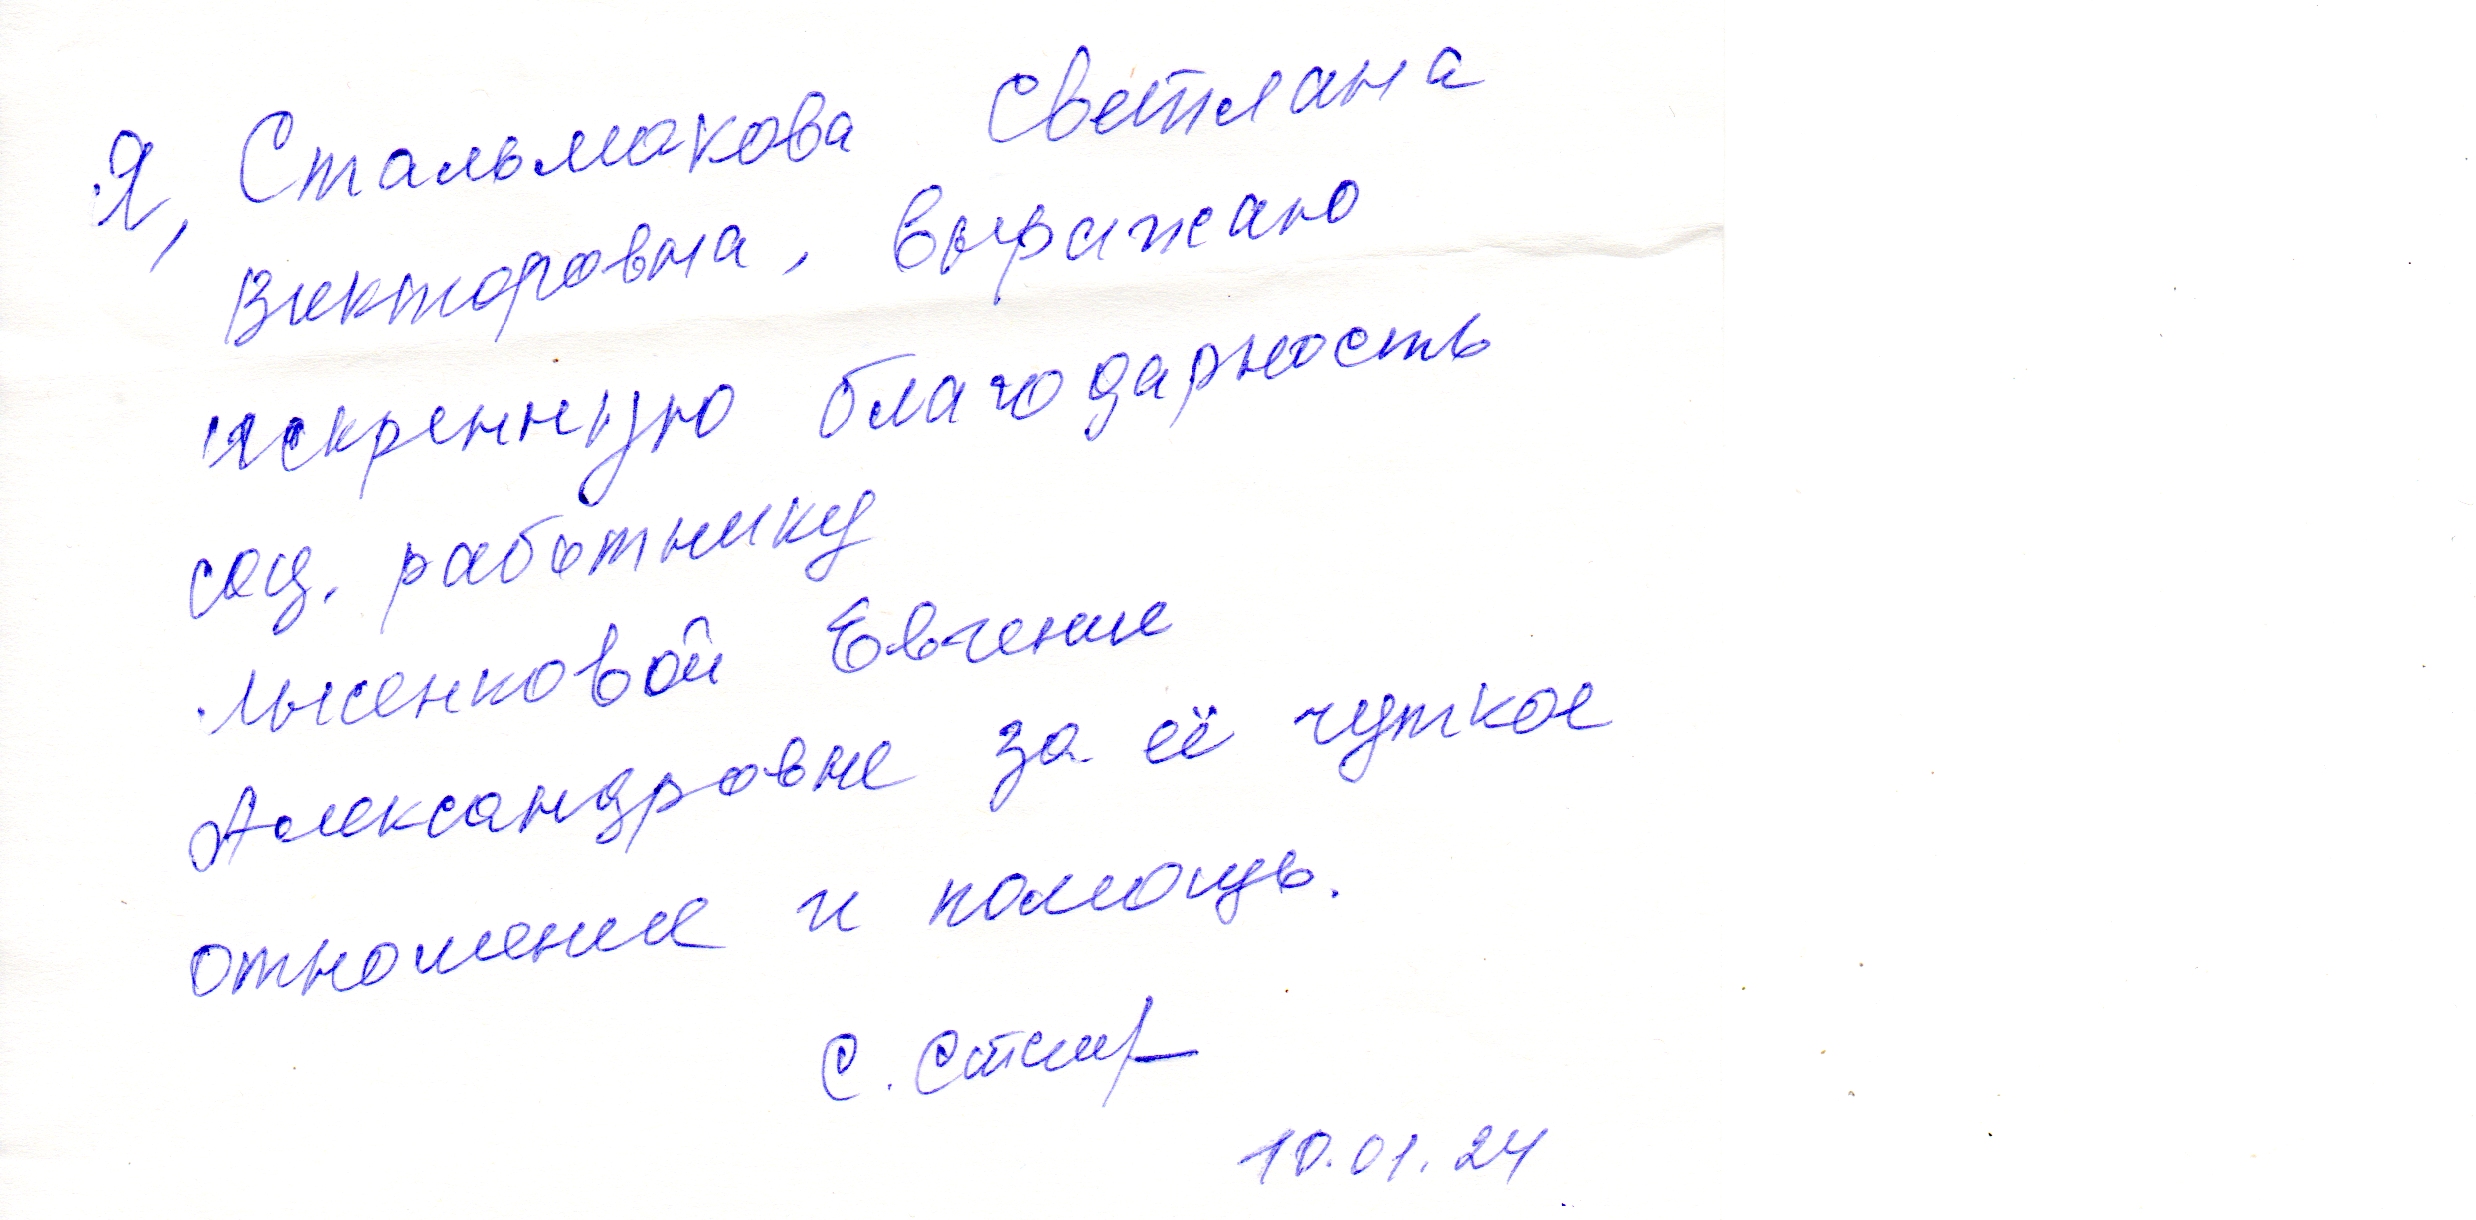 Я, Стальмакова Светлана
Викторовна, выражаю
искреннюю благодарность
соц. работнику
Лысенковой Евгение
Александровне за её чуткое
отношение и помощь.
С.
10.01.24